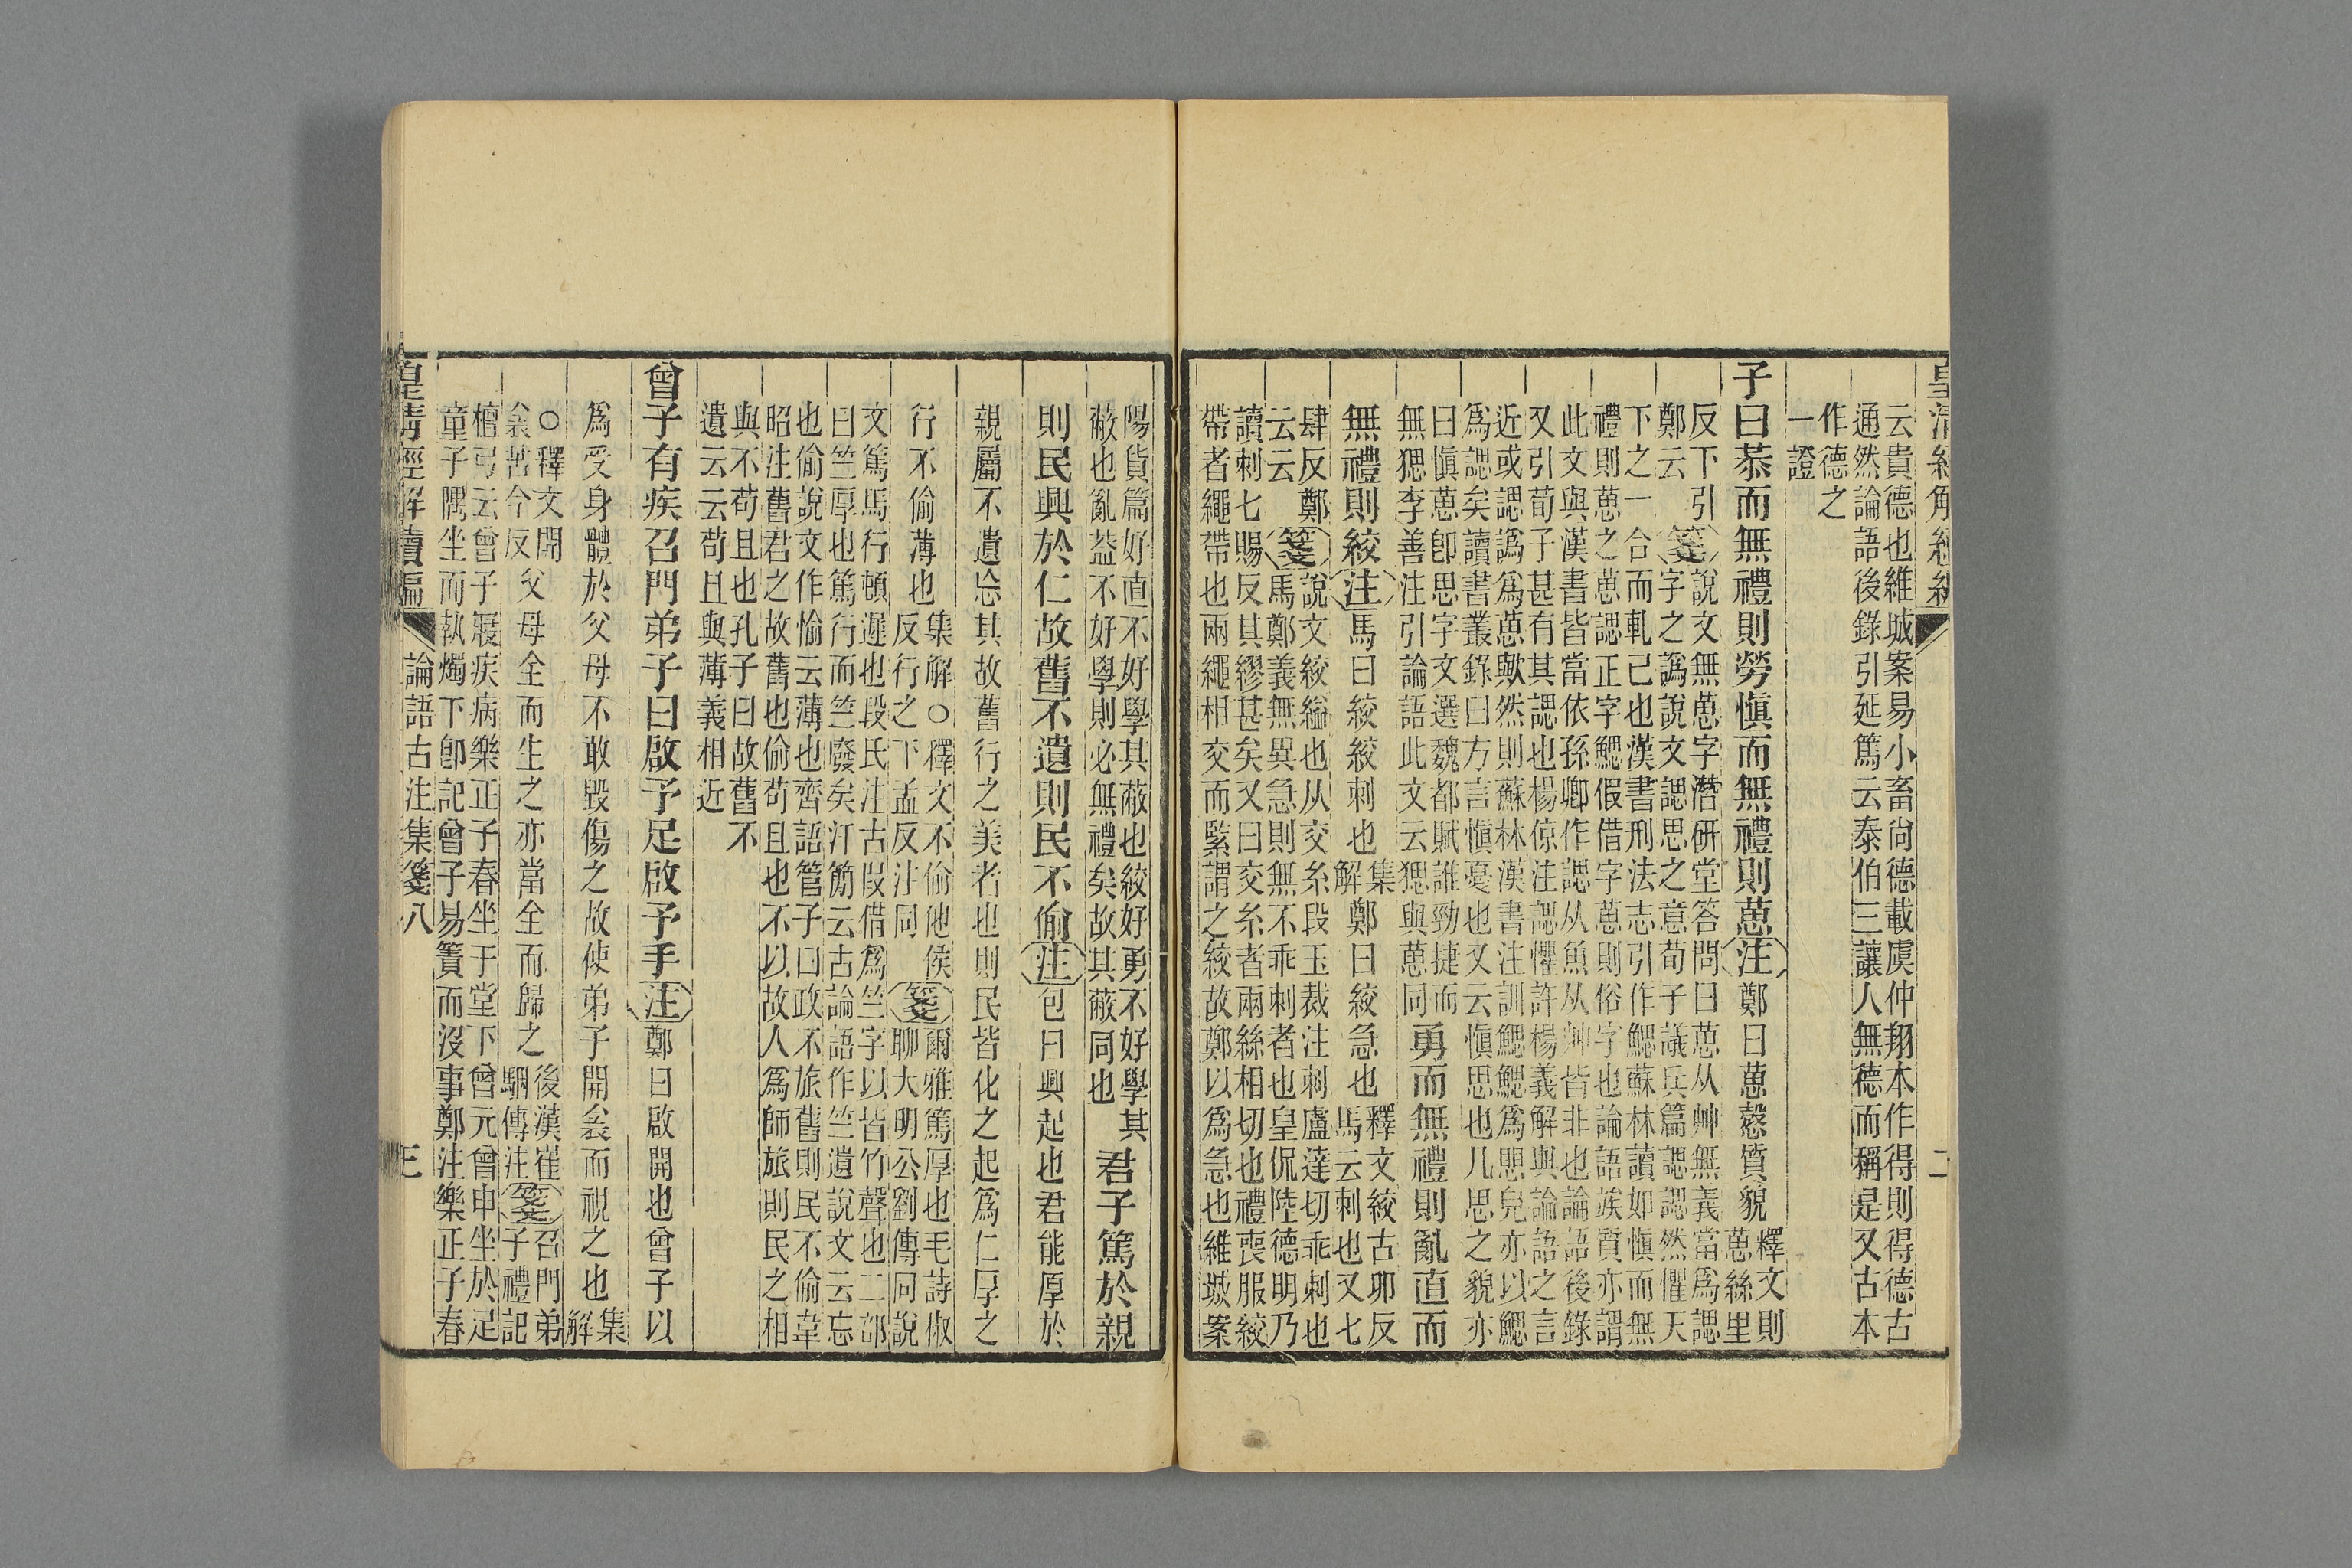 云貴德也維城案易小畜尙德載虞仲翔本作得則得德古
通然論語後錄引延篤云泰伯三讓人無德而稱是又古本
作德之
一證
子曰恭而無禮則勞愼而無禮則葸注鄭曰葸慤質貌
釋文則
葸絲里
反下引
鄭云
箋
說文無葸字潛硏堂答問曰葸从艸無義當爲諰
字之譌說文諰思之意荀子議兵篇諰諰然懼天
下之一合而軋己也漢書刑法志引作鰓蘇林讀如愼而無
禮則葸之葸諰正字鰓假借字葸則俗字也論語蔟質亦謂
此文與漢書皆當依孫卿作諰从魚从艸皆非也論語後錄
又引荀子甚有其諰也楊倞注諰懼許楊義解與論語之言
近或諰譌爲葸歟然則蘇林漢書注訓鰓鰓爲思皃亦以鰓
爲諰矣讀書叢錄曰方言愼憂也又云愼思也凡思之貌亦
曰愼葸卽思字文選魏都賦誰勁捷而
無猑李善注引論語此文云猑與葸同
勇而無禮則亂直而
無禮則絞注馬曰絞絞刺也
集
解
鄭曰絞急也
釋文絞古卯反
馬云刺也又七
肆反鄭
云云
箋
說文絞縊也从交糸段玉裁注刺盧達切乖刺也
馬鄭義無異急則無不乖刺者也皇侃陸德明乃
讀刺七賜反其繆甚矣又曰交糸者兩絲相切也禮喪服絞
帶者繩帶也兩繩相交而緊謂之絞故鄭以爲急也維城案
陽貨篇好直不好學其蔽也絞好勇不好學其
蔽也亂葢不好學則必無禮矣故其蔽同也
君子篤於親
則民興於仁故舊不遺則民不偷注包曰興起也君能厚於
親屬不遺忘其故舊行之美者也則民皆化之起爲仁厚之
行不偷薄也
集解○釋文不偷他侯
反行之下孟反注同
箋
爾雅篤厚也毛詩椒
聊大明公劉傳同說
文篤馬行頓遲也段氏注古叚借爲竺字以皆竹聲也二部
曰竺厚也篤行而竺廢矣汗簡云古論語作竺遺說文云忘
也偷說文作愉云薄也齊語管子曰政不旅舊則民不偷韋
昭注舊君之故舊也偷苟且也不以故人爲師旅則民之相
與不苟且也孔子曰故舊不
遺云云苟且與薄義相近
曾子有疾召門弟子曰啟予足啟予手注鄭曰啟開也曾子以
爲受身體於父母不敢毀傷之故使弟子開衾而視之也
集
解
○釋文開
衾苦今反
父母全而生之亦當全而歸之
後漢崔
駰傳注
箋
召門弟
子禮記
檀弓云曾子寢疾病樂正子春坐于堂下曾元曾申坐於足
童子隅坐而執燭下卽記曾子易簀而沒事鄭注樂正子春
皇淸經解續編
論語古注集箋八
三